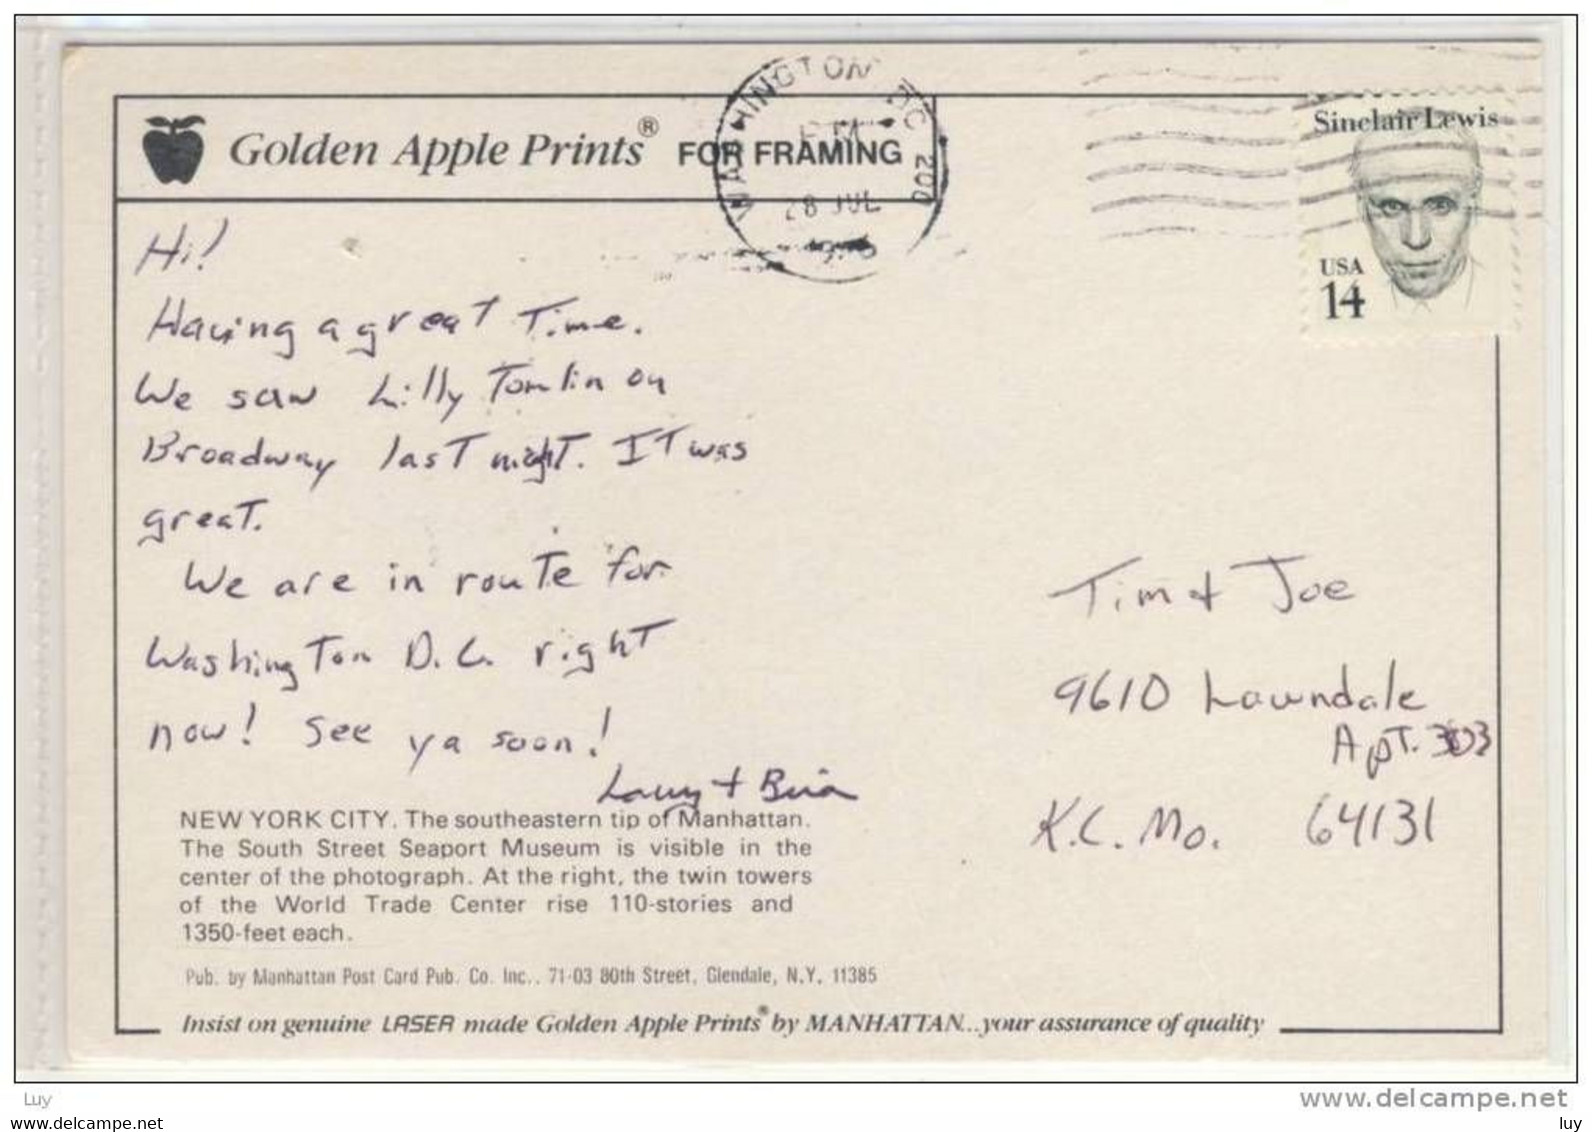 Golden Apple Prints® FOR FRAMING
WASHINGTON DC 200
PM
28 JUL
Sinclair Lewis
USA
14
Hi!
Having a great Time.
We saw Lilly Tomlin on
Broadway last night. IT was
great.
We are in route for
Washington D.C. right
now! See ya soon!
Larry + Brian
Tim + Joe
9610 Lawndale
Apt. 303
K.C. Mo. 64131
NEW YORK CITY. The southeastern tip of Manhattan.
The South Street Seaport Museum is visible in the
center of the photograph. At the right, the twin towers
of the World Trade Center rise 110-stories and
1350-feet each.
Pub. by Manhattan Post Card Pub. Co. Inc.. 71-03 80th Street, Glendale, N.Y. 11385
Insist on genuine LASER made Golden Apple Prints® by MANHATTAN...your assurance of quality
Luy
www.delcampe.net
www.delcampe.net
luy